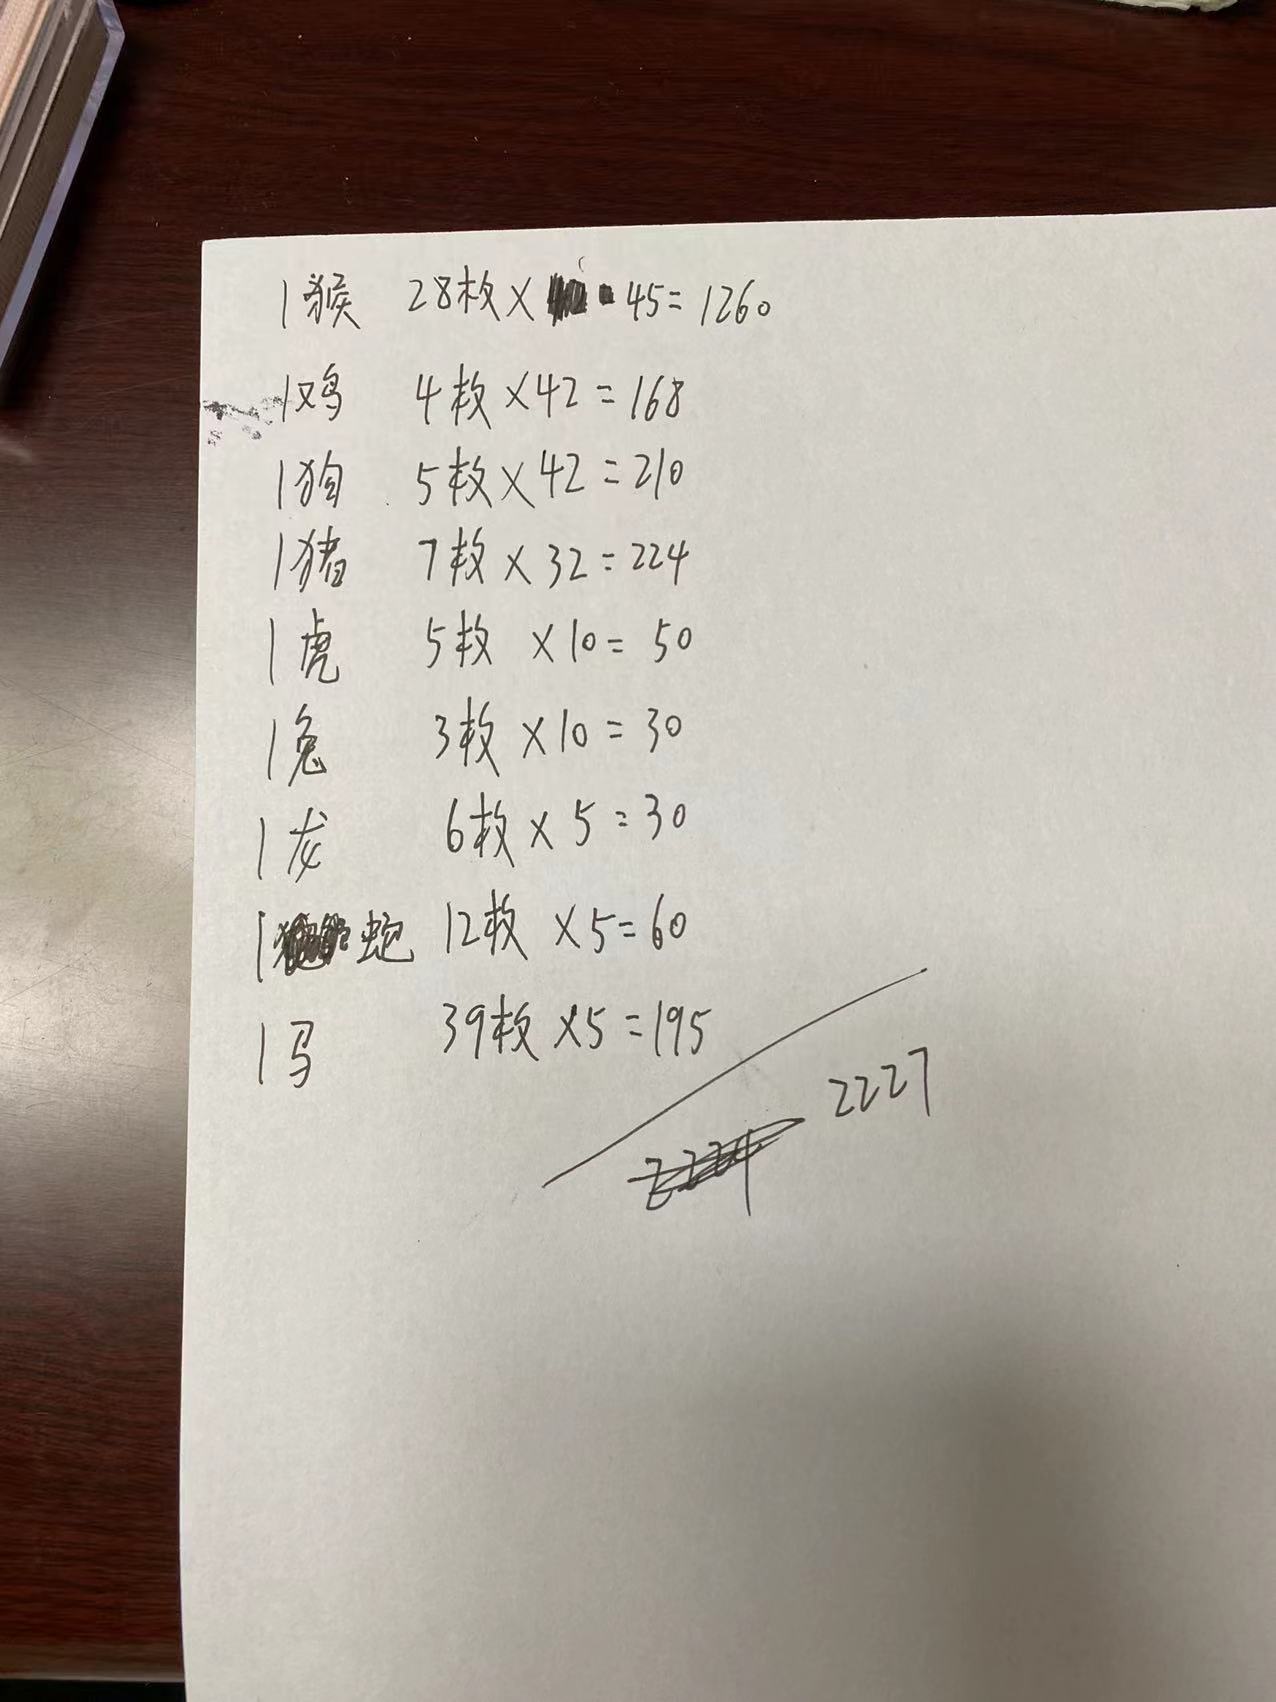 1猴 28枚×45=1260
1鸡 4枚×42=168
1狗 5枚×42=210
1猪 7枚×32=224
1虎 5枚×10=50
1兔 3枚×10=30
1龙 6枚×5=30
1蛇 12枚×5=60
1马 39枚×5=195
2227